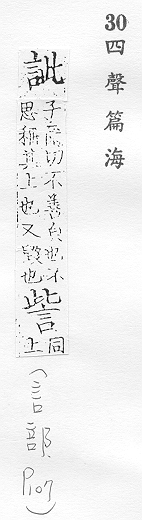 30四聲篇海
訿
子爾切不善皃也不
思稱其上也又毀也
訾
同
上
(言部
P107)